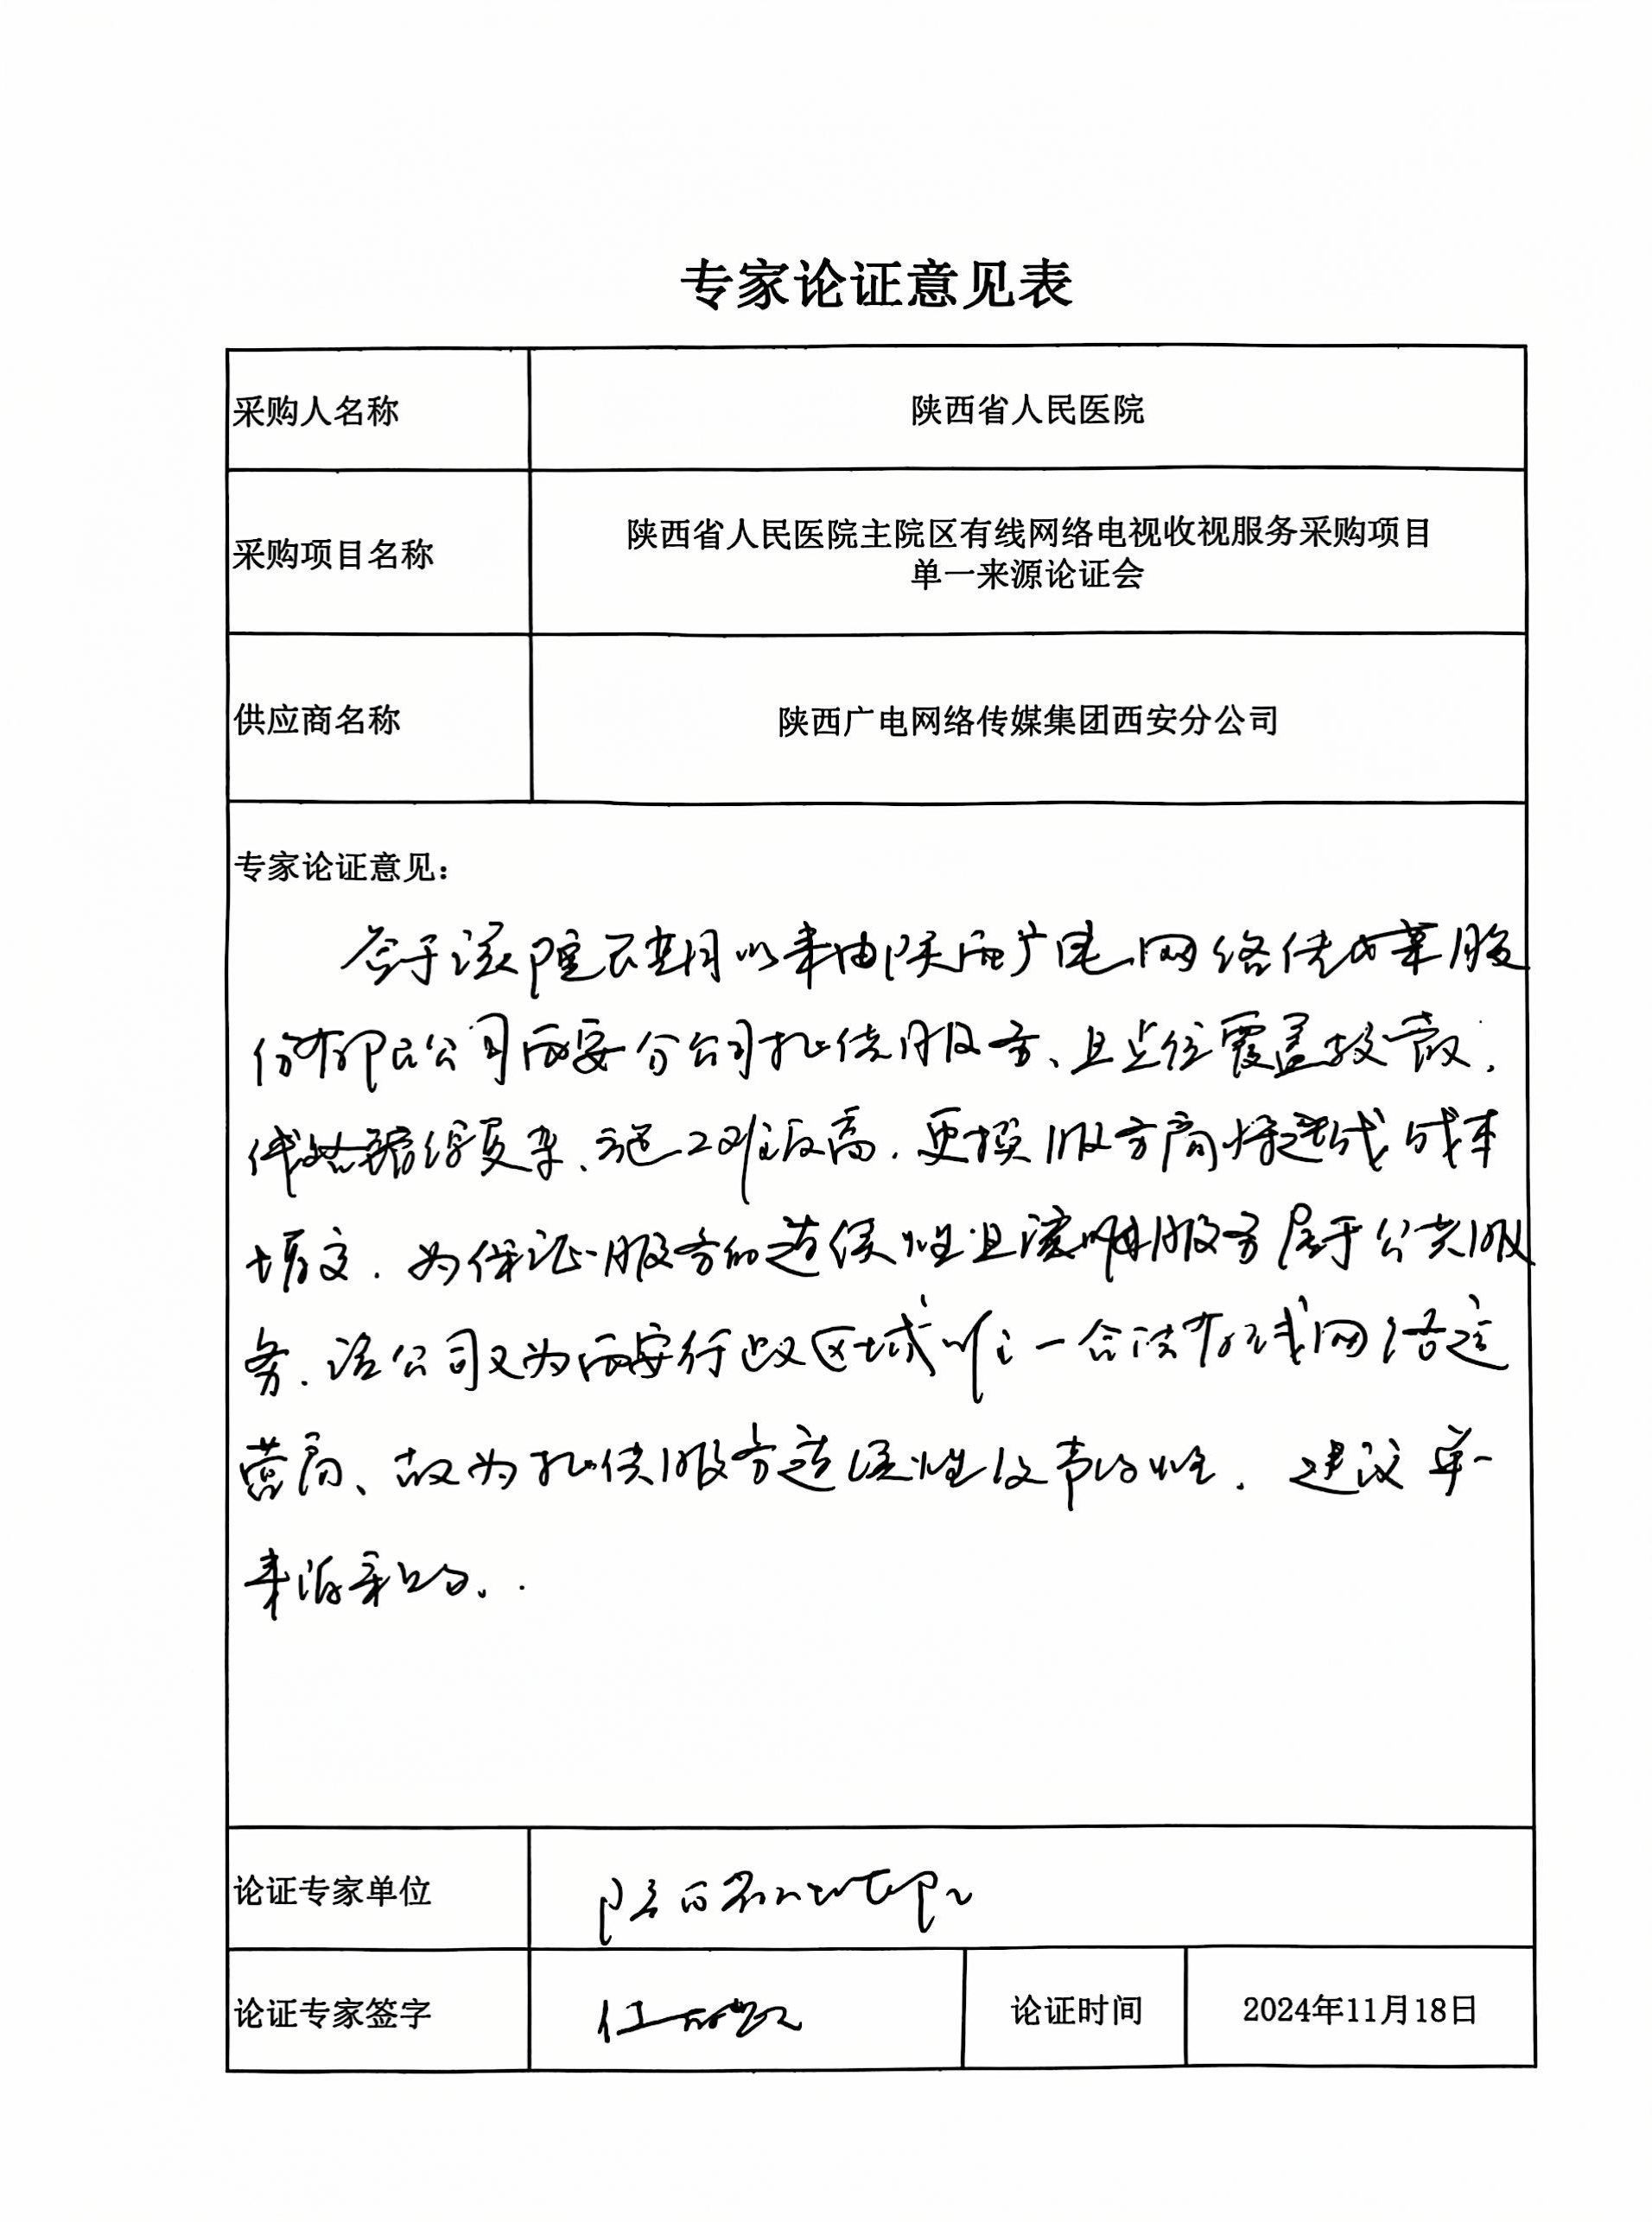 专家论证意见表
采购人名称
陕西省人民医院
采购项目名称
陕西省人民医院主院区有线网络电视收视服务采购项目
单一来源论证会
供应商名称
陕西广电网络传媒集团西安分公司
专家论证意见：
鉴于该院长期以来由陕西广电网络传媒股
份有限公司西安分公司提供服务、且点位覆盖较散，
线路复杂、施工难度高，更换服务商将造成成本
增多，为保证服务的连续性且该服务属于公共服
务，该公司又为西安行政区域唯一合法有线网络运
营商、故为提供服务连续性及节约性，建议单一
来源采购。
论证专家单位
论证专家签字
论证时间
2024年11月18日